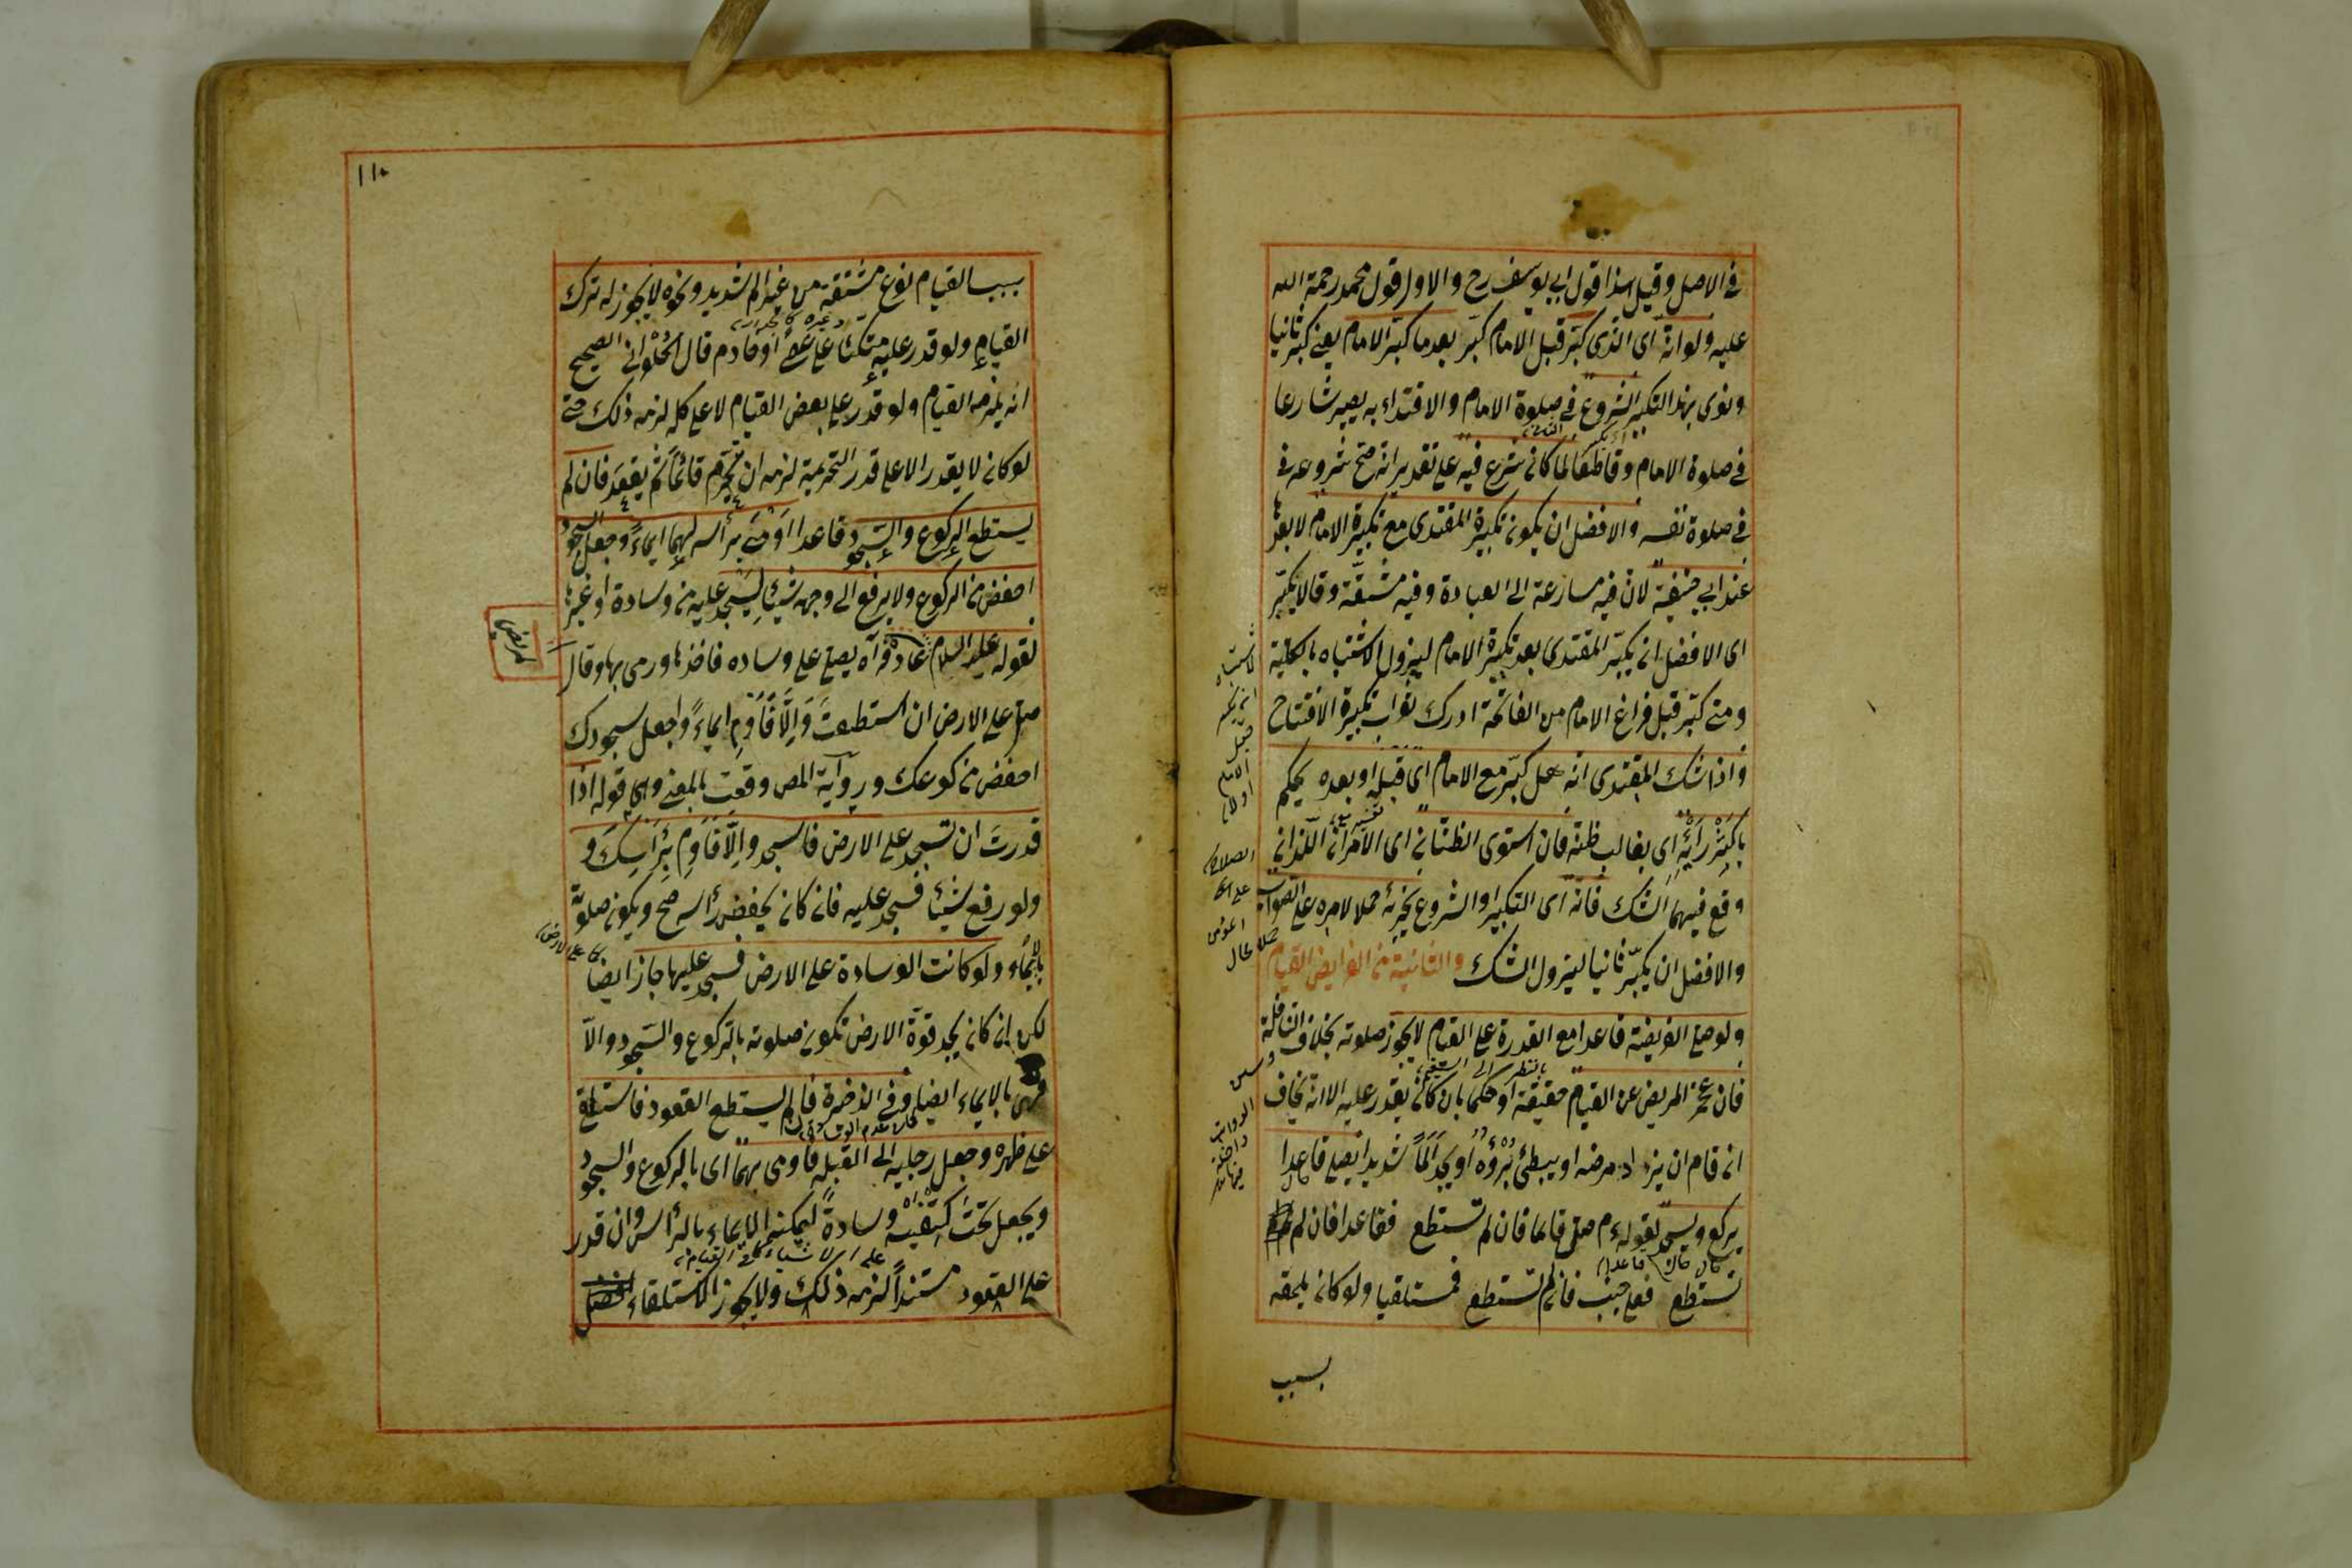 في الاصل وقيل هذا قول ابي يوسف رح والاول قول محمد رحمة الله
عليه ولو انه اى الذى كبّر قبل الامام كبّر بعد ما كبّر الامام يعنى كبّر ثانيا
ونوى بهذا التكبير الشروع فى صلوة الامام والاقتداء به يصير شارعا
فى صلوة الامام وقاطعا لما كان شرع فيه على تقدير انه صحّ شروعه فى
فى صلوة نفسه والافضل ان يكون تكبيرة المقتدى مع تكبيرة الامام لا بعدها
عند ابي حنيفة لان فيه مسارعة الى العبادة وفيه مشقّة وقالا يكبّر
اى الافضل ان يكبّر المقتدى بعد تكبيرة الامام ليزول الاشتباه بالكلية
ومتى كبّر قبل فراغ الامام من الفاتحة ادرك ثواب تكبيرة الافتتاح
واذا شك المقتدى انه هل كبّر مع الامام اى قبله او بعده يحكم
باكبر رأيه اى بغالب ظنه فان استوى الظنّان اى الامران اللذان
وقع فيهما الشك فانه اى التكبير والشروع يجزئه حملا لامره على الصواب
والافضل ان يكبّر ثانيا ليزول الشك والثانية من الفرايض القيام
ولو صلى الفريضة قاعدا مع القدرة على القيام لا يجوز صلوته بخلاف النافلة
فان عجز المريض عن القيام حقيقة او حكما بان كان يقدر عليه الا انه يخاف
ان قام ان يزداد مرضه او يبطئ برؤه او يجد الما شديدا يصلى قاعدا
يركع ويسجد لقوله عم صلّ قائما فان لم تستطع فقاعدا فان لم
تستطع فعلى جنب فان لم تستطع فمستلقيا ولو كان يلحقه
بسبب
١١٠
بسبب القيام نوع مشقة من غير الم شديد ونحوه لا يجوز له ترك
القيام ولو قدر عليه متكئا على عصا او خادم قال الحلوانى الصحيح
انه يلزمه القيام ولو قدر على بعض القيام لا على كله لزمه ذلك حتى
لو كان لا يقدر الا على قدر التحريمة لزمه ان يتحرم قائما ثم يقعد فان لم
يستطع الركوع والسجود قاعدا اومى برأسه لهما ايماءً وجعل السجود
اخفض من الركوع ولا يرفع الى وجهه شيئا ليسجد عليه من وسادة او غيرها
لقوله عليه السلام عاده فرآه يصلى على وساده فاخذها ورمى بها وقال
صلّ على الارض ان استطعت والّا فاوم ايماءً واجعل سجودك
اخفض من ركوعك ورواية المص وقعت بالمعنى وهى قوله اذا
قدرت ان تسجد على الارض فاسجد والّا فاوم برأسك و
ولو رفع شيئا فسجد عليه فان كان يخفض رأسه صح ويكون صلوته
بالايماء ولو كانت الوسادة على الارض فسجد عليها جاز ايضا
لكن ان كان يجد قوّة الارض تكون صلوته بالركوع والسجود والّا
فهى بالايماء ايضا وفى الذخيرة فان لم يستطع القعود فاستلقى
على ظهره وجعل رجليه الى القبلة فاومى بهما اى بالركوع والسجود
ويجعل تحت كتفيه وسادةً ليمكنه الايماء بالرأس وان قدر
على القعود مستنداً لزمه ذلك ولا يجوز الاستلقاء